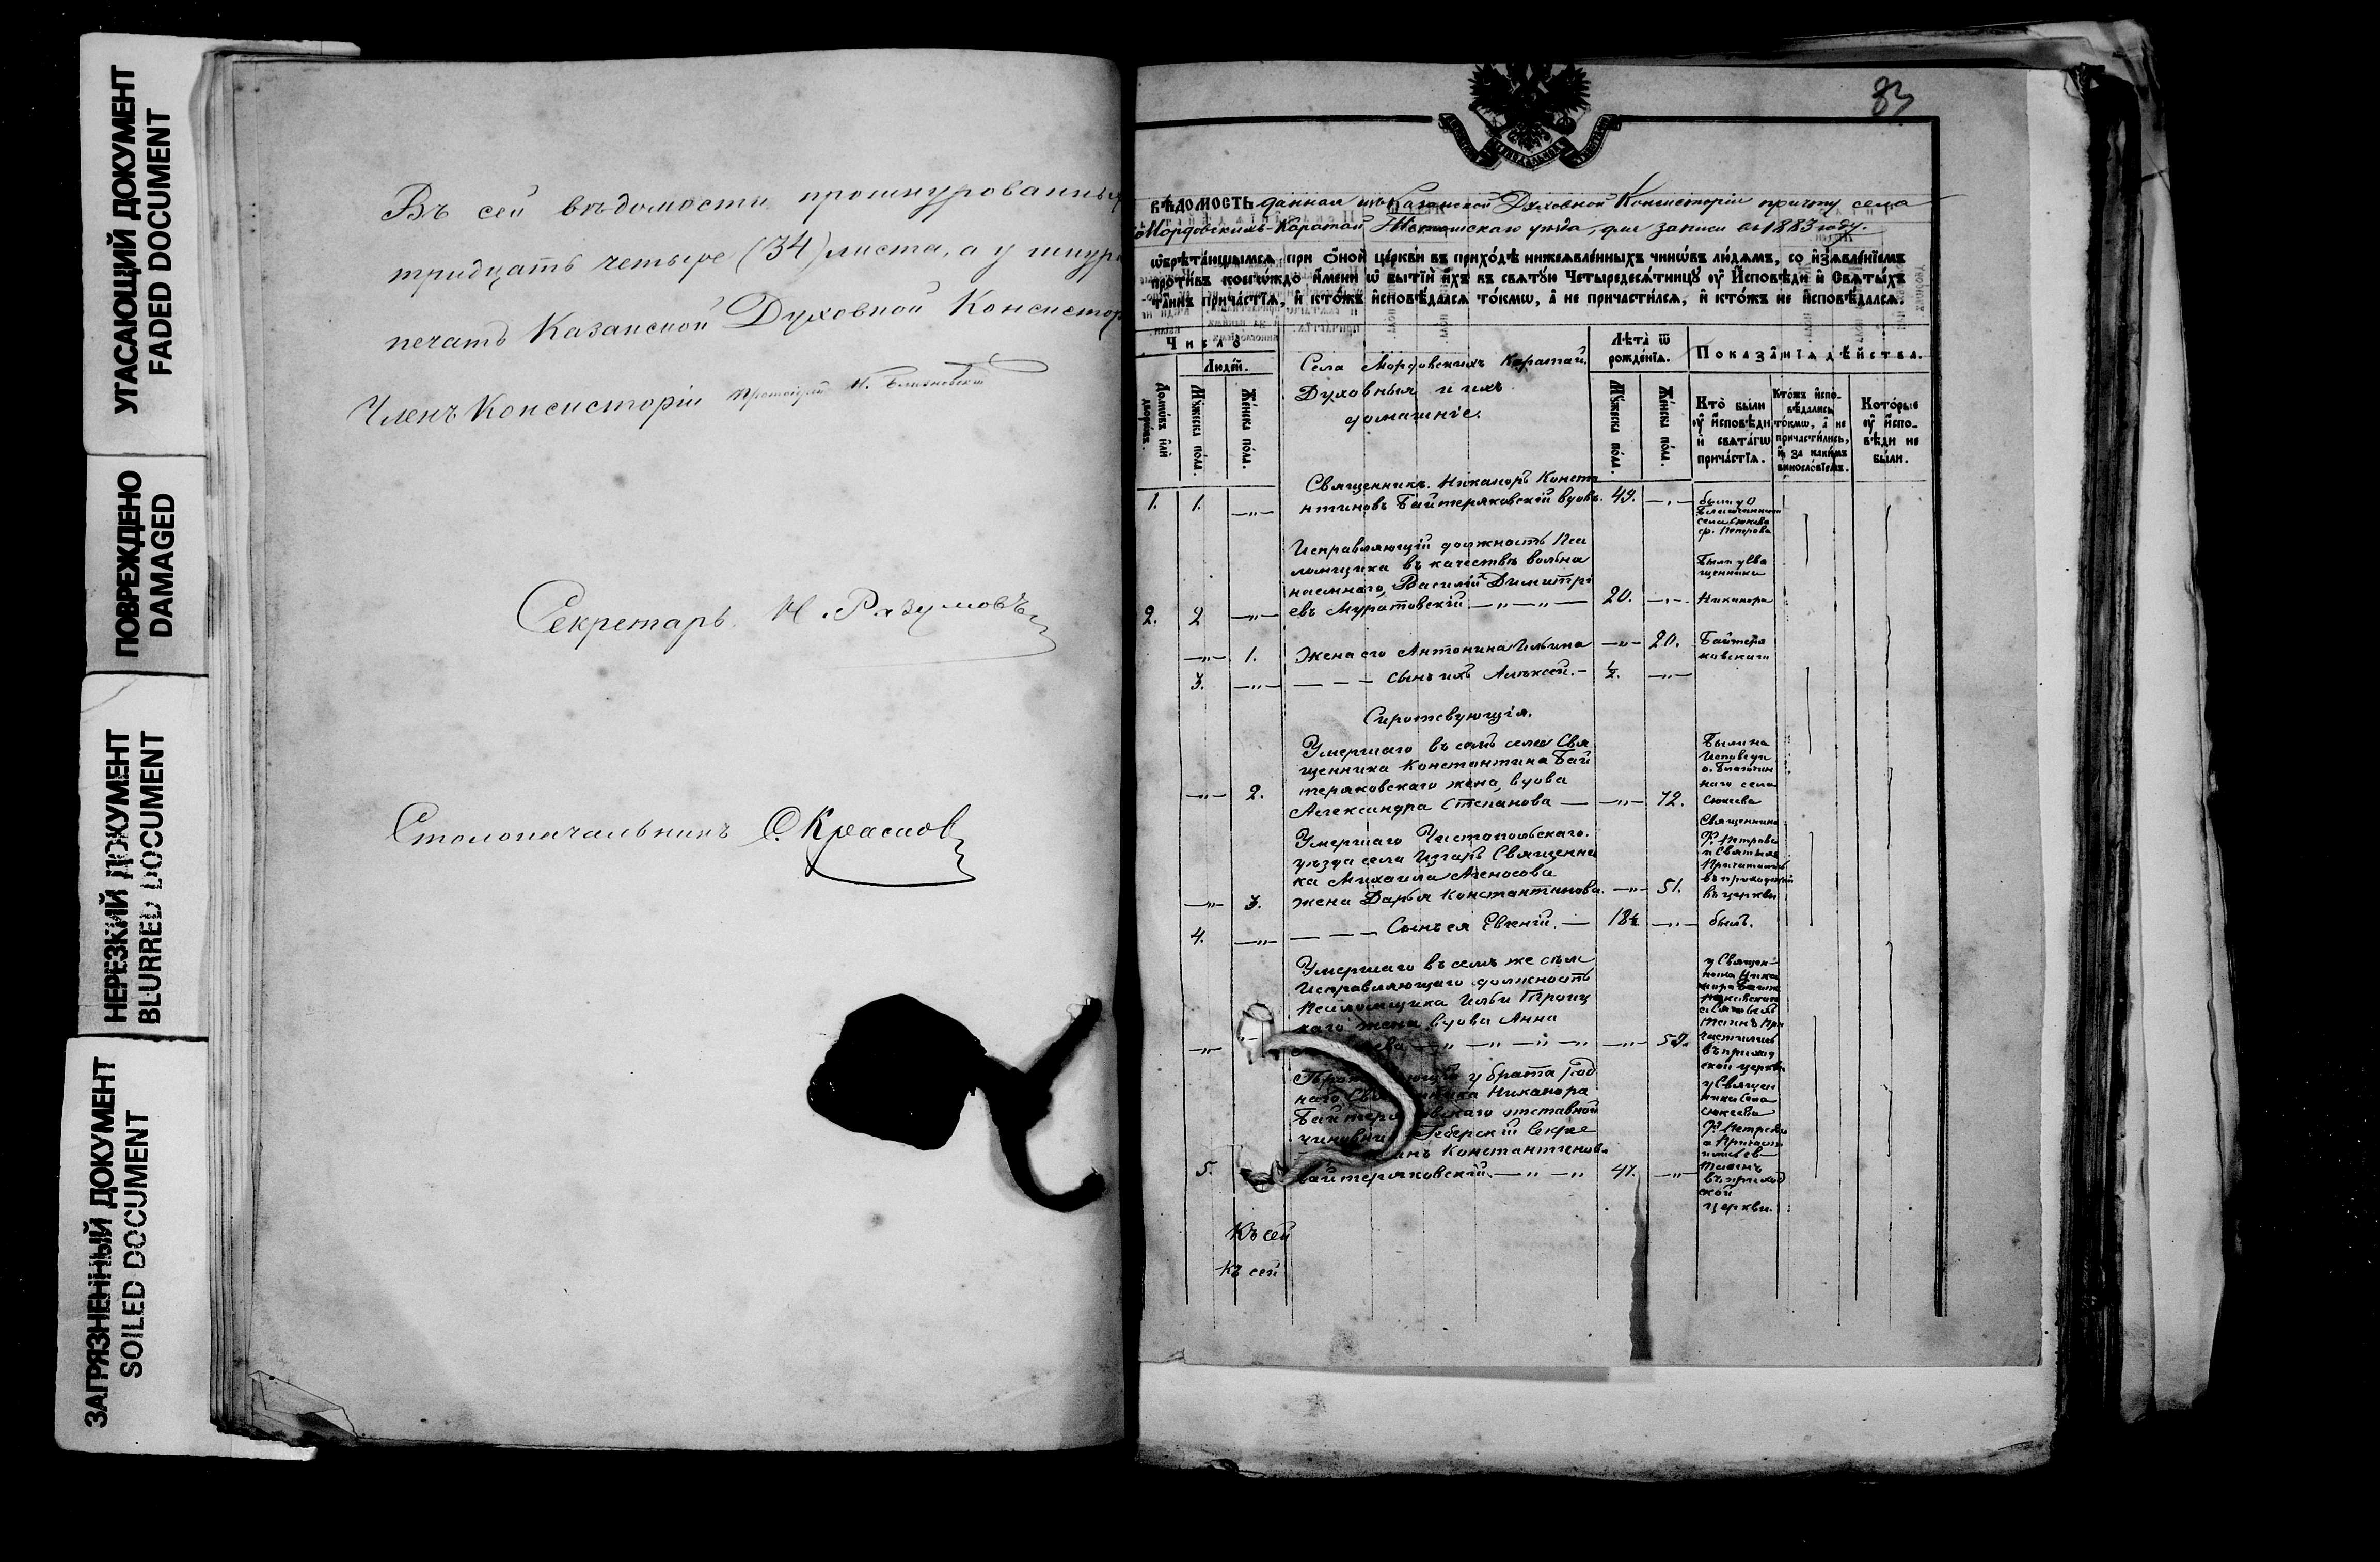 УГАСАЮЩИЙ ДОКУМЕНТ
FADED DOCUMENT
ПОВРЕЖДЕНО
DAMAGED
НЕРЕЗКИЙ ДОКУМЕНТ
BLURRED DOCUMENT
ЗАГРЯЗНЕННЫЙ ДОКУМЕНТ
SOILED DOCUMENT
Въ сей вѣдомости прошнурованных
тридцать четыре (34) листа, а у шнура
печать Казанской Духовной Консистор
Членъ Консисторіи Протоіерей
Секретарь. Н. Разумовъ
Столоначальникъ С. Краснов
83
ВѢДОМОСТЬ данная изъ Казанской Духовной Консисторіи причту села
Мордовскихъ-Каратай Тетюшскаго уѣзда, для записи въ 1883 году.
ѡбрѣтающымся при оной церкви въ приходѣ нижеявленныхъ чинѡвъ людямъ, со изъявленіемъ
противъ коегѡждо имени ѡ бытіи ихъ въ святую Четыредесятницу оу Исповѣди и Святыхъ
Таинъ причастія, и ктожъ исповѣдался токмѡ, а не причастился, и ктожъ не исповѣдался.
Число
Людей.
Домѡвъ или дворѡвъ.
Мужеска пола.
Женска пола.
Села Мордовскихъ Каратай.
Духовныя и ихъ
домашніе.
Лѣта ѿ
рожденія.
Мужеска пола.
Женска пола.
Показанія дѣйства.
Кто были
оу исповѣди
и святагѡ
причастія.
Ктожъ испо-
вѣдались
токмѡ, а не
причастились,
и за какимъ
винословіемъ.
Которые
оу испо-
вѣди не
были.
Священникъ. Никаноръ Конста
1. 1. —„— нтиновъ Байтеряковскій вдовъ. 49. —„—
были у О
Благочиннаго
села Сюкеева
Ф. Петрова
Исправляющій должность Пса
ломщика въ качествѣ вольна
наемнаго, Василій Димитрі
2. 2 —„— евъ Муратовскій —„—„— 20. —„—
Были у Свя
щенника
Никанора
—„— 1. Жена его Антонина Ильина —„— 20.
Байтеря
ковскаго
3. —„— — — — сынъ ихъ Алексѣй. — ½. —„—
Сиротсвующія.
Умершаго въ семъ селѣ Свя
щенника Константина Бай
теряковскаго жена, вдова
—„— 2. Александра Степанова — —„— 72.
Были на
Исповѣди
о. Благочин
наго села
Сюкеева
Священника
Умершаго Чистопольскаго.
уѣзда села Изгаръ Священни
ка Михаила
—„— 3. жена Дарья Константинова. —„— 51.
Ф. Петрова
и Святыхъ
въ приходской
въ церкви
4. —„— — — — Сынъ ея Евгеній. — 18½ —„— былъ.
Умершаго въ семъ же селѣ
Исправляющаго должность
Псаломщика Ильи Троиц
каго жена, вдова Анна
—„— —„—„—„—„ —„—
у Священ-
ника Ника
нора Байте
ряковскаго
Таинъ При
частились
въ приход
ской церкви
у брата род
наго Никанора
отставной
чиновни Секре
Константинов.
5. Байтеряковскій —„—„ 47. —„—
у Священ
ника села
Сюкеева
Ф. Петрова
а Причаст
Таинъ
въ приход
ской
церкви.
Къ сей
Къ сей